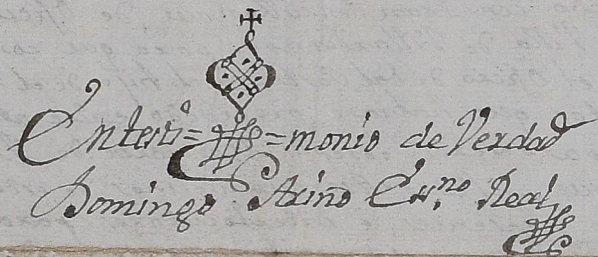 En testi= =monio de Verdad
Domingo Ariño Essno. Real